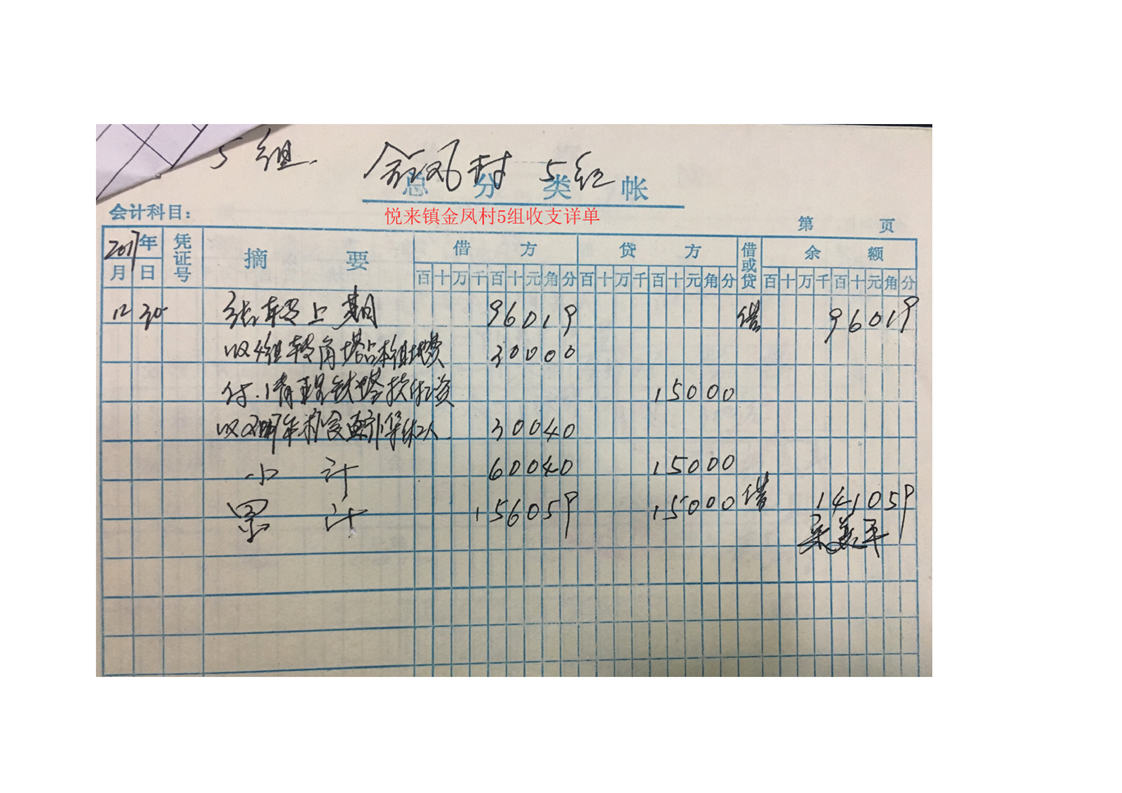 5组. 金凤村 5组
总 分 类 帐
悦来镇金凤村5组收支详单
会计科目: 第 页
2017年 凭证号 摘 要 借 方 贷 方 借或贷 余 额
月 日 百十万千百十元角分 百十万千百十元角分 百十万千百十元角分
12 30 结转上期 96019 借 96019
收 组转角塔占 组地费 30000
付 清 铁塔款 资 15000
收 年 30040
小 计 60040 15000
累 计 156059 15000 借 141059